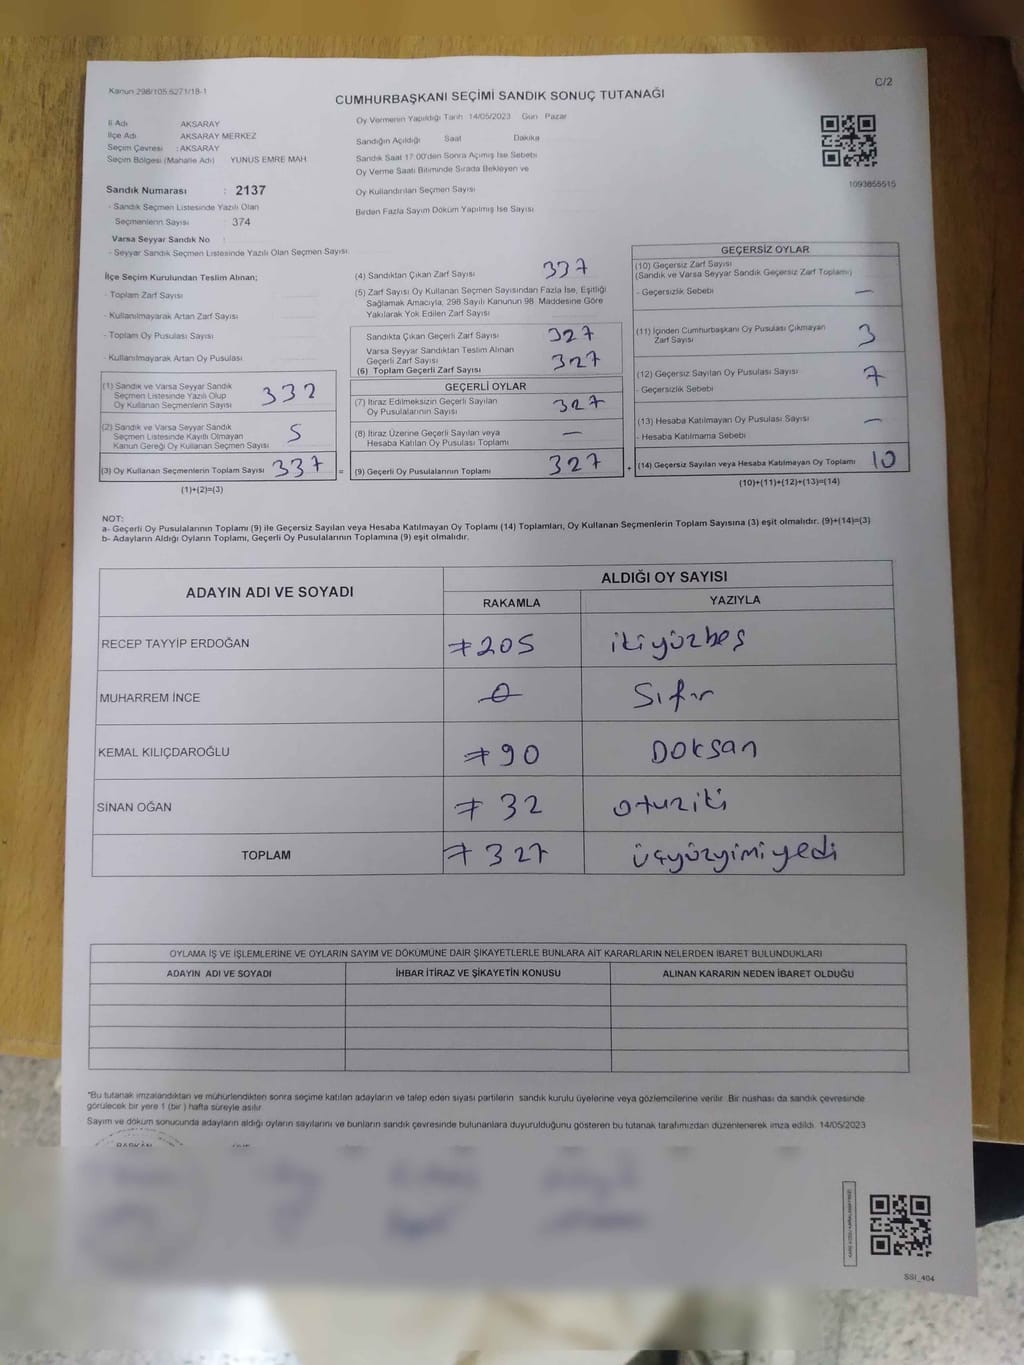 Kanun 298/105 6271/18-1
C/2
CUMHURBAŞKANI SEÇİMİ SANDIK SONUÇ TUTANAĞI
İl Adı AKSARAY
İlçe Adı AKSARAY MERKEZ
Seçim Çevresi : AKSARAY
Seçim Bölgesi (Mahalle Adı) YUNUS EMRE MAH.
Sandık Numarası : 2137
- Sandık Seçmen Listesinde Yazılı Olan
Seçmenlerin Sayısı : 374
Varsa Seyyar Sandık No :
- Seyyar Sandık Seçmen Listesinde Yazılı Olan Seçmen Sayısı
Oy Vermenin Yapıldığı Tarih 14/05/2023 Gün Pazar
Sandığın Açıldığı Saat Dakika
Sandık Saat 17:00'den Sonra Açımış İse Sebebi
Oy Verme Saati Bitiminde Sırada Bekleyen ve
Oy Kullandırılan Seçmen Sayısı
Birden Fazla Sayım Döküm Yapılmış İse Sayısı
1093855515
İlçe Seçim Kurulundan Teslim Alınan;
- Toplam Zarf Sayısı
- Kullanılmayarak Artan Zarf Sayısı
- Toplam Oy Pusulası Sayısı
- Kullanılmayarak Artan Oy Pusulası
(1) Sandık ve Varsa Seyyar Sandık
Seçmen Listesinde Yazılı Olup
Oy Kullanan Seçmenlerin Sayısı 332
(2) Sandık ve Varsa Seyyar Sandık
Seçmen Listesinde Kayıtlı Olmayan
Kanun Gereği Oy Kullanan Seçmen Sayısı 5
(3) Oy Kullanan Seçmenlerin Toplam Sayısı 337 =
(1)+(2)=(3)
(4) Sandıktan Çıkan Zarf Sayısı 337
(5) Zarf Sayısı Oy Kullanan Seçmen Sayısından Fazla İse, Eşitliği
Sağlamak Amacıyla, 298 Sayılı Kanunun 98. Maddesine Göre
Yakılarak Yok Edilen Zarf Sayısı
Sandıkta Çıkan Geçerli Zarf Sayısı 327
Varsa Seyyar Sandıktan Teslim Alınan
Geçerli Zarf Sayısı
(6) Toplam Geçerli Zarf Sayısı 327
GEÇERLİ OYLAR
(7) İtiraz Edilmeksizin Geçerli Sayılan
Oy Pusulalarının Sayısı 327
(8) İtiraz Üzerine Geçerli Sayılan veya
Hesaba Katılan Oy Pusulası Toplamı —
(9) Geçerli Oy Pusulalarının Toplamı 327 +
GEÇERSİZ OYLAR
(10) Geçersiz Zarf Sayısı
(Sandık ve Varsa Seyyar Sandık Geçersiz Zarf Toplamı)
- Geçersizlik Sebebi —
(11) İçinden Cumhurbaşkanı Oy Pusulası Çıkmayan
Zarf Sayısı 3
(12) Geçersiz Sayılan Oy Pusulası Sayısı 7
- Geçersizlik Sebebi
(13) Hesaba Katılmayan Oy Pusulası Sayısı —
- Hesaba Katılmama Sebebi
(14) Geçersiz Sayılan veya Hesaba Katılmayan Oy Toplamı 10
(10)+(11)+(12)+(13)=(14)
NOT:
a- Geçerli Oy Pusulalarının Toplamı (9) ile Geçersiz Sayılan veya Hesaba Katılmayan Oy Toplamı (14) Toplamları, Oy Kullanan Seçmenlerin Toplam Sayısına (3) eşit olmalıdır. (9)+(14)=(3)
b- Adayların Aldığı Oyların Toplamı, Geçerli Oy Pusulalarının Toplamına (9) eşit olmalıdır.
ADAYIN ADI VE SOYADI ALDIĞI OY SAYISI
RAKAMLA YAZIYLA
RECEP TAYYİP ERDOĞAN ≠205 ikiyüzbeş
MUHARREM İNCE 0 Sıfır
KEMAL KILIÇDAROĞLU ≠90 Doksan
SİNAN OĞAN ≠32 otuziki
TOPLAM ≠327 üçyüzyimiyedi
OYLAMA İŞ VE İŞLEMLERİNE VE OYLARIN SAYIM VE DÖKÜMÜNE DAİR ŞİKAYETLERLE BUNLARA AİT KARARLARIN NELERDEN İBARET BULUNDUKLARI
ADAYIN ADI VE SOYADI İHBAR İTİRAZ VE ŞİKAYETİN KONUSU ALINAN KARARIN NEDEN İBARET OLDUĞU
"Bu tutanak imzalandıktan ve mühürlendikten sonra seçime katılan adayların ve talep eden siyasi partilerin sandık kurulu üyelerine veya gözlemcilerine verilir. Bir nüshası da sandık çevresinde
görülecek bir yere 1 (bir ) hafta süreyle asılır.
Sayım ve döküm sonucunda adayların aldığı oyların sayılarını ve bunların sandık çevresinde bulunanlara duyurulduğunu gösteren bu tutanak tarafımızdan düzenlenerek imza edildi. 14/05/2023
BAŞKAN
SSI_404